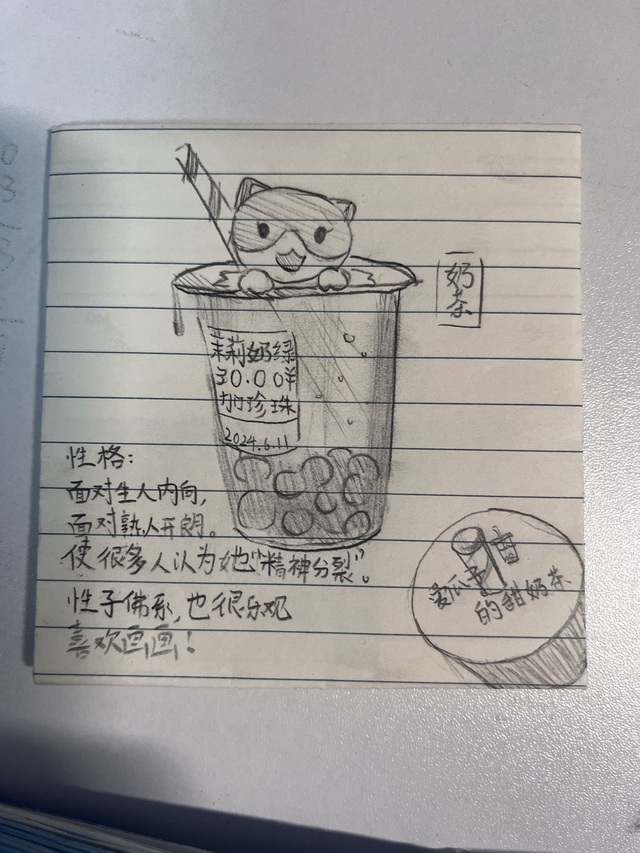 奶茶
茉莉奶绿
30.00¥
加珍珠
2024.6.11
性格:
面对生人内向,
面对熟人开朗。
使很多人认为她“精神分裂”。
性子佛系,也很乐观
喜欢画画!
的甜奶茶